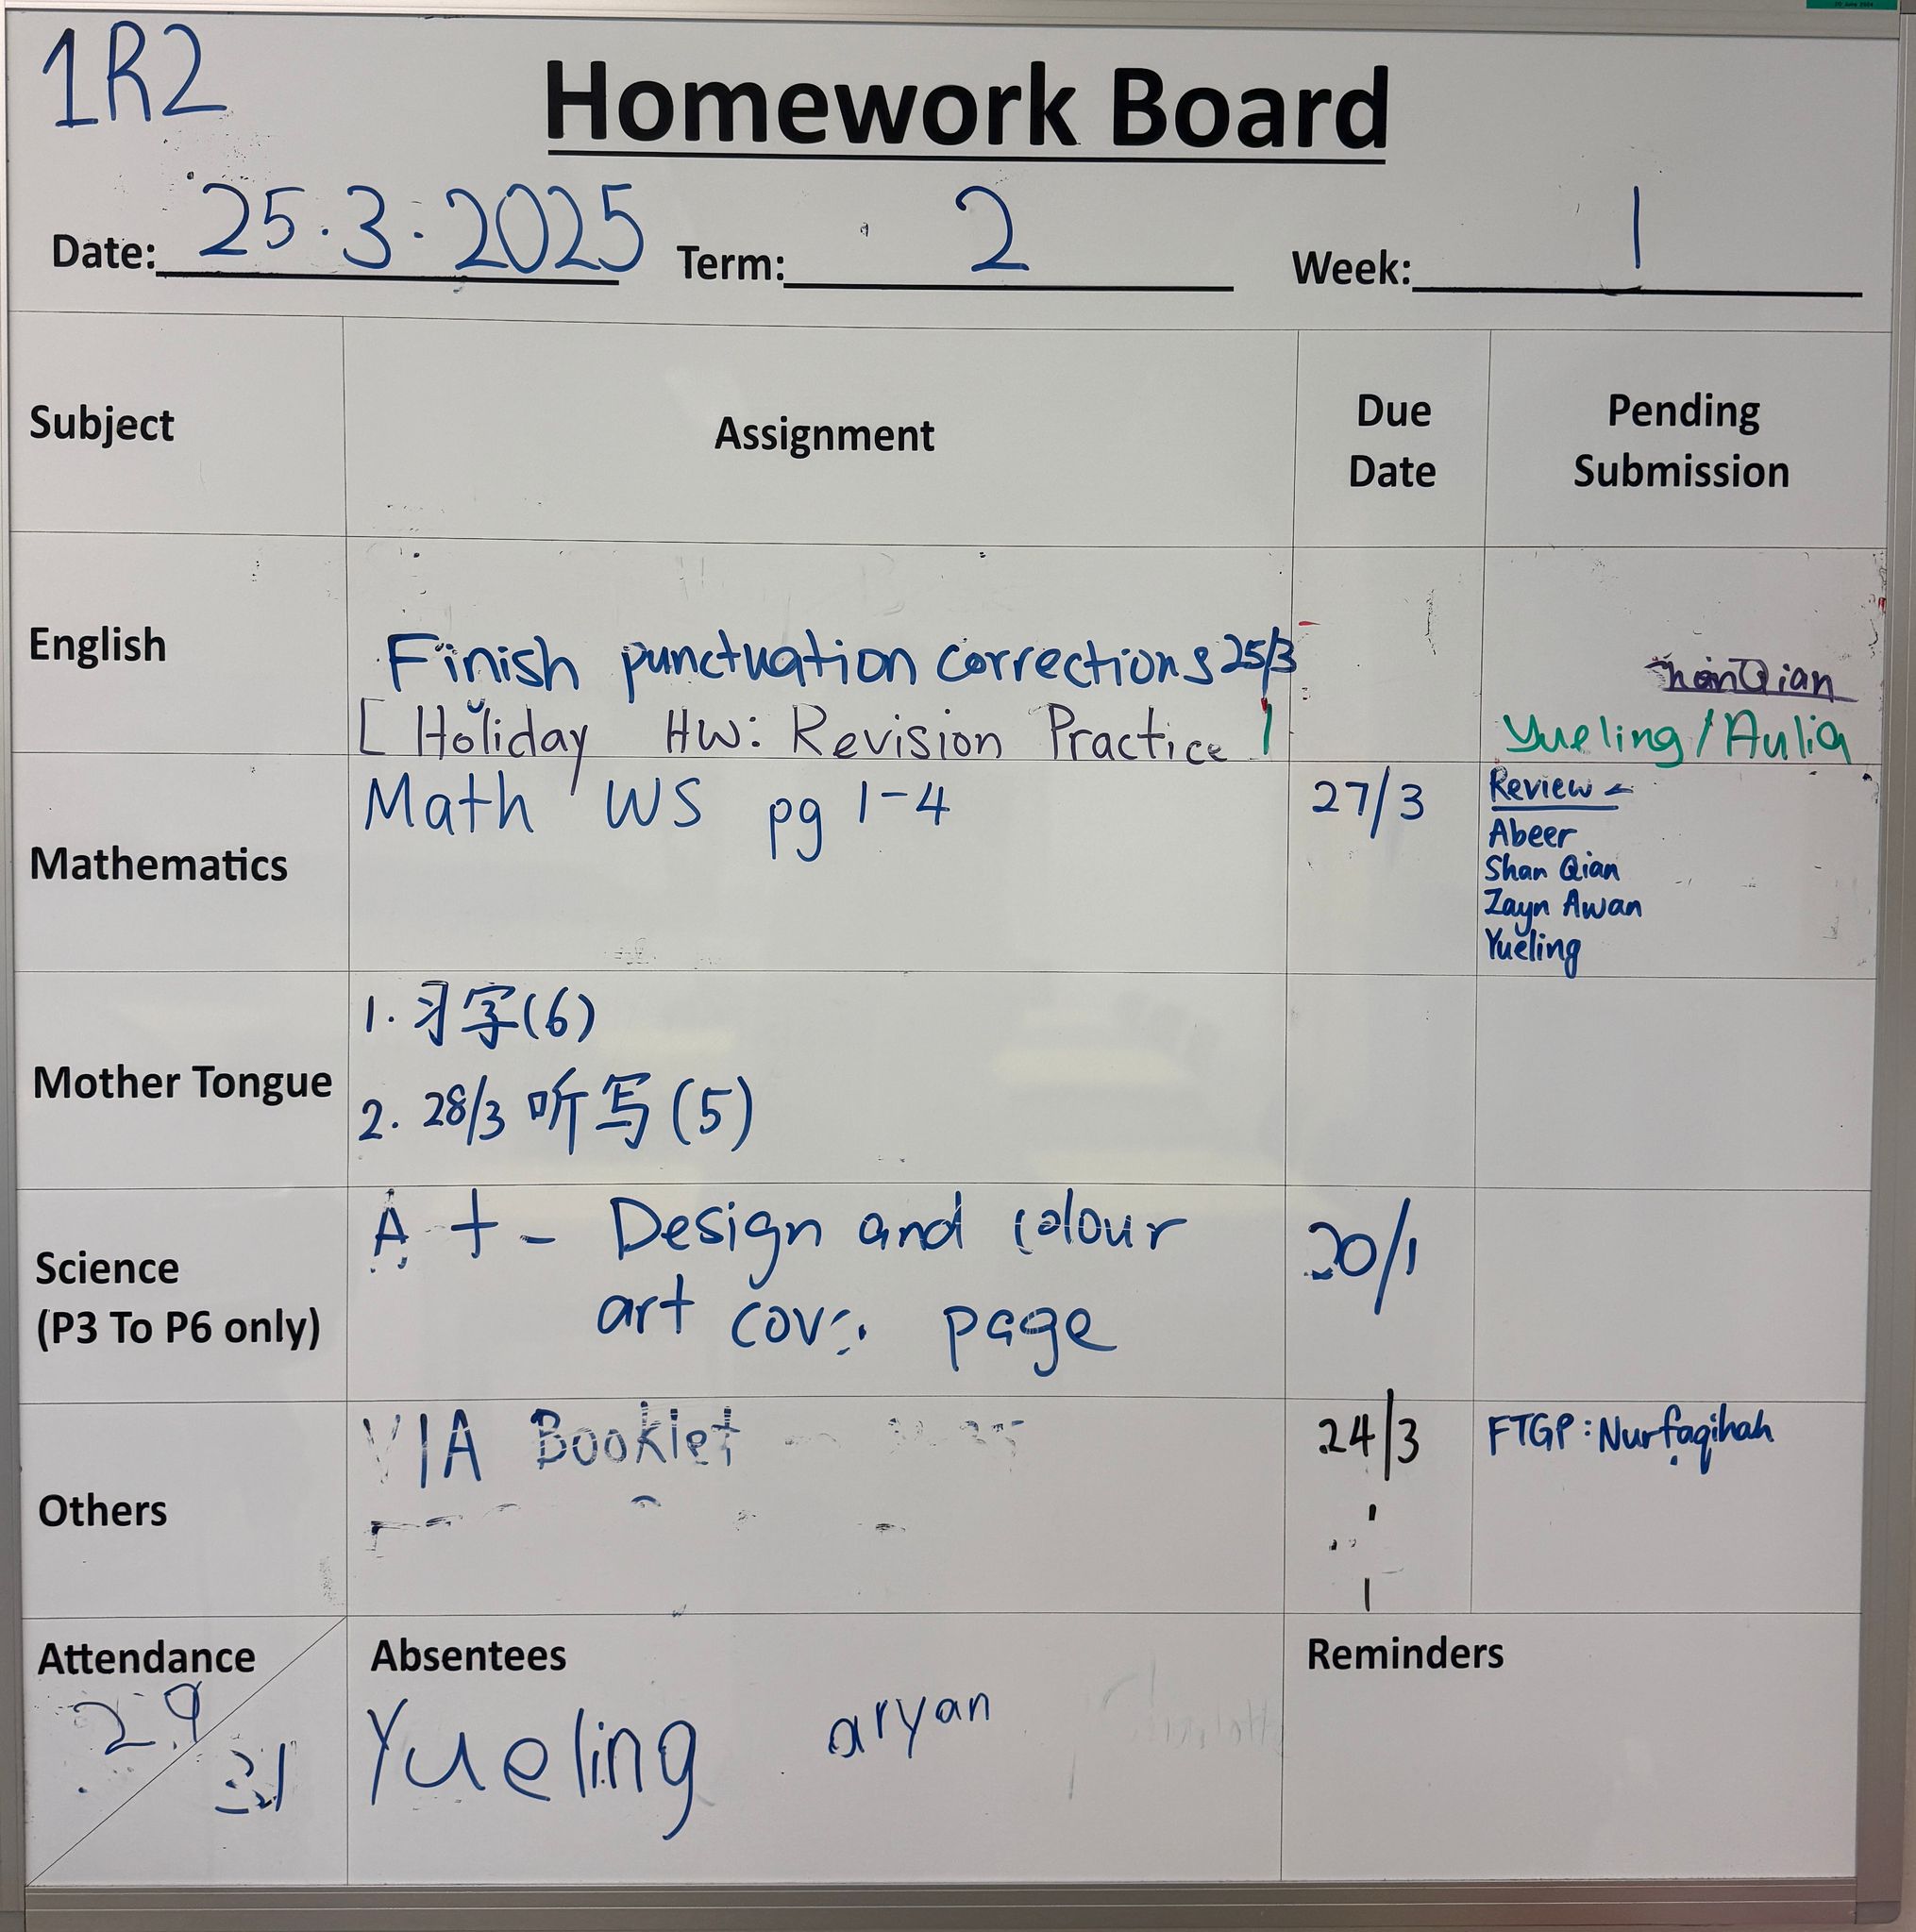 1R2
Homework Board
Date: 25.3.2025 Term: 2 Week: 1
Subject Assignment Due Date Pending Submission
English
Finish punctuation corrections 25/3
[Holiday HW: Revision Practice]
Yueling/Aulia
Mathematics
Math WS pg 1-4
27/3
Review
Abeer
Shan Qian
Zayn Awan
Yueling
Mother Tongue
1. 习字(6)
2. 28/3 听写(5)
Science
(P3 To P6 only)
Design and colour
art page
Others
VIA Booklet
24/3
FTGP: Nurfaqihah
Attendance
29
31
Absentees
Yueling aryan
Reminders